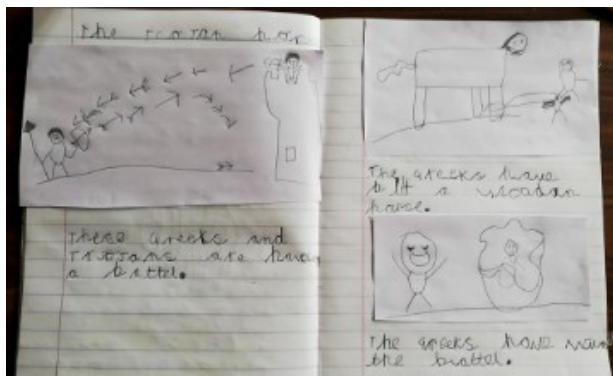 The Trojan hor
These Greeks and
Trojans are havin
a battel.
The Greeks have
bilt a
horse.
The Greeks have won
the battel.